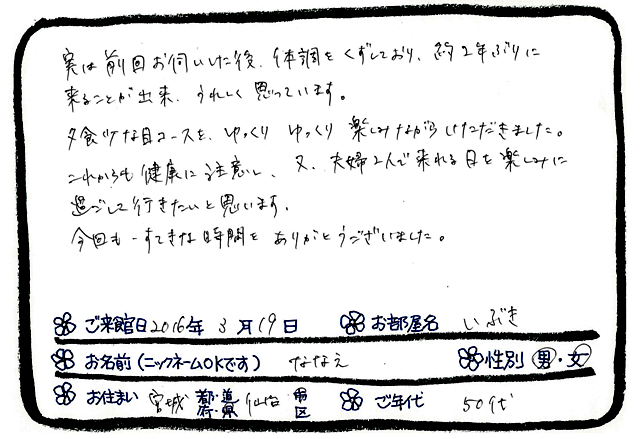 実は前回お伺いした後、体調をくずしており、約2年ぶりに
来ることが出来、うれしく思っています。
夕食少な目コースを、ゆっくり ゆっくり 楽しみながらいただきました。
これからも健康に注意し、又、夫婦2人で来れる日を楽しみに
過ごして行きたいと思います。
今回も、すてきな時間を ありがとうございました。
ご来館日 2016年 3月19日 お部屋名 いぶき
お名前(ニックネームOKです) ななえ 性別 男・女
お住まい 宮城 都・道・府・県 仙台 市 区 ご年代 50代